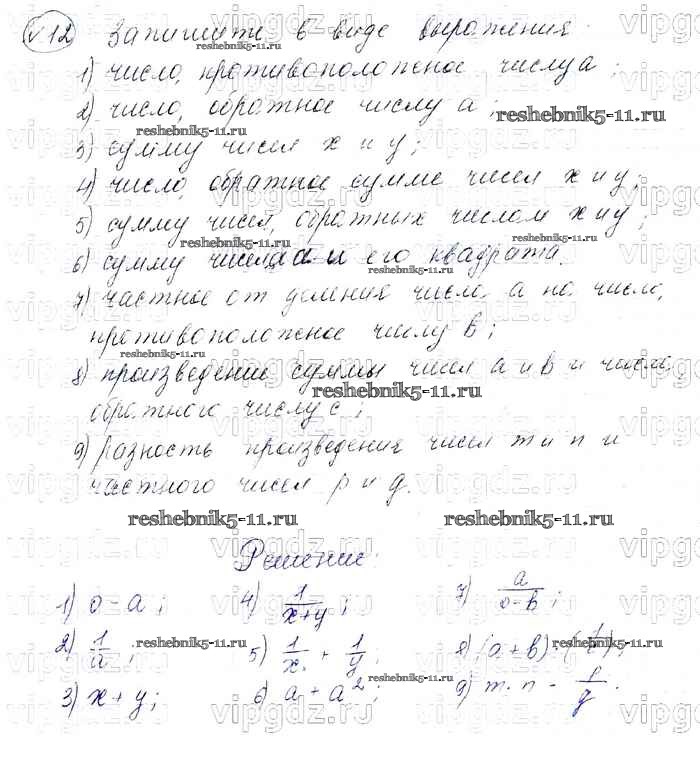 №12 Запишите в виде выражения:
1) число, противоположное числу a;
2) число, обратное числу a;
3) сумму чисел x и y;
4) число, обратное сумме чисел x и y;
5) сумму чисел, обратных числам x и y;
6) сумму числа a и его квадрата.
7) частное от деления числа a на число,
противоположное числу b;
8) произведение суммы чисел a и b и числа,
обратного числу c;
9) разность произведения чисел m и n и
частного чисел p и q.
Решение:
1) 0 - a; 4) 1/(x+y); 7) a/(0-b);
2) 1/a; 5) 1/x + 1/y; 8) (a+b)
3) x + y; 6) a + a²; 9) m·n - p/q.
reshebnik5-11.ru
vipgdz.ru